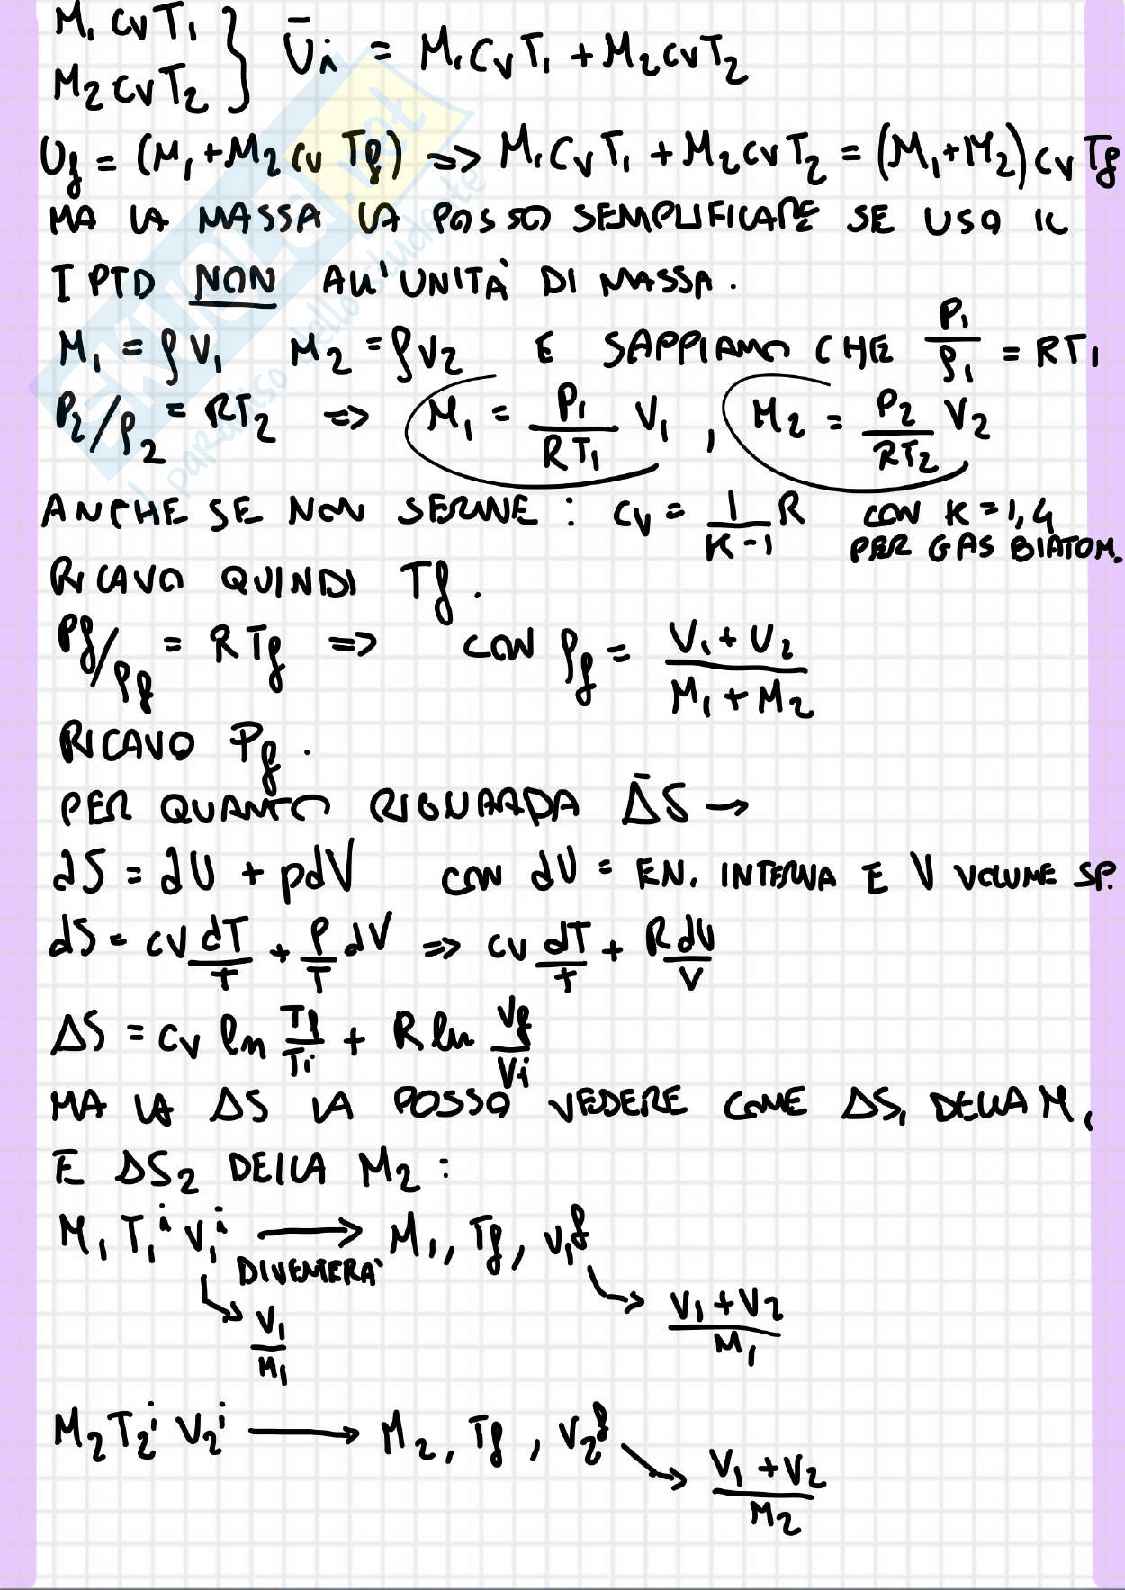 M₁ cv T₁ } Ūi = M₁ cv T₁ + M₂ cv T₂
M₂ cv T₂
Uf = (M₁ + M₂ cv Tf) => M₁ cv T₁ + M₂ cv T₂ = (M₁ + M₂) cv Tf
MA LA MASSA LA POSSO SEMPLIFICARE SE USO IL
I PTD NON ALL'UNITÀ DI MASSA.
M₁ = ρ V₁ M₂ = ρ V₂ E SAPPIAMO CHE P₁/ρ₁ = RT₁
P₂/ρ₂ = RT₂ => M₁ = P₁/RT₁ V₁ , M₂ = P₂/RT₂ V₂
ANCHE SE NON SERVE : cv = 1/K-1 R CON K = 1,4
PER GAS BIATOM.
RICAVO QUINDI Tf.
Pf/ρf = R Tf => CON ρf = V₁ + V₂/M₁ + M₂
RICAVO Pf.
PER QUANTO RIGUARDA Δ̄S →
dS = dU + pdV CON dU = EN. INTERNA E V VOLUME SP.
dS = cv dT/T + P/T dV => cv dT/T + R dV/V
ΔS = cv ln Tf/Ti + R ln Vf/Vi
MA LA ΔS LA POSSO VEDERE COME ΔS₁ DELLA M₁
E ΔS₂ DELLA M₂ :
M₁ T₁ⁱ V₁ⁱ → M₁, Tf, V₁f
DIVENTERÀ
V₁/M₁
V₁ + V₂/M₁
M₂ T₂ⁱ V₂ⁱ → M₂, Tf, V₂f
V₁ + V₂/M₂